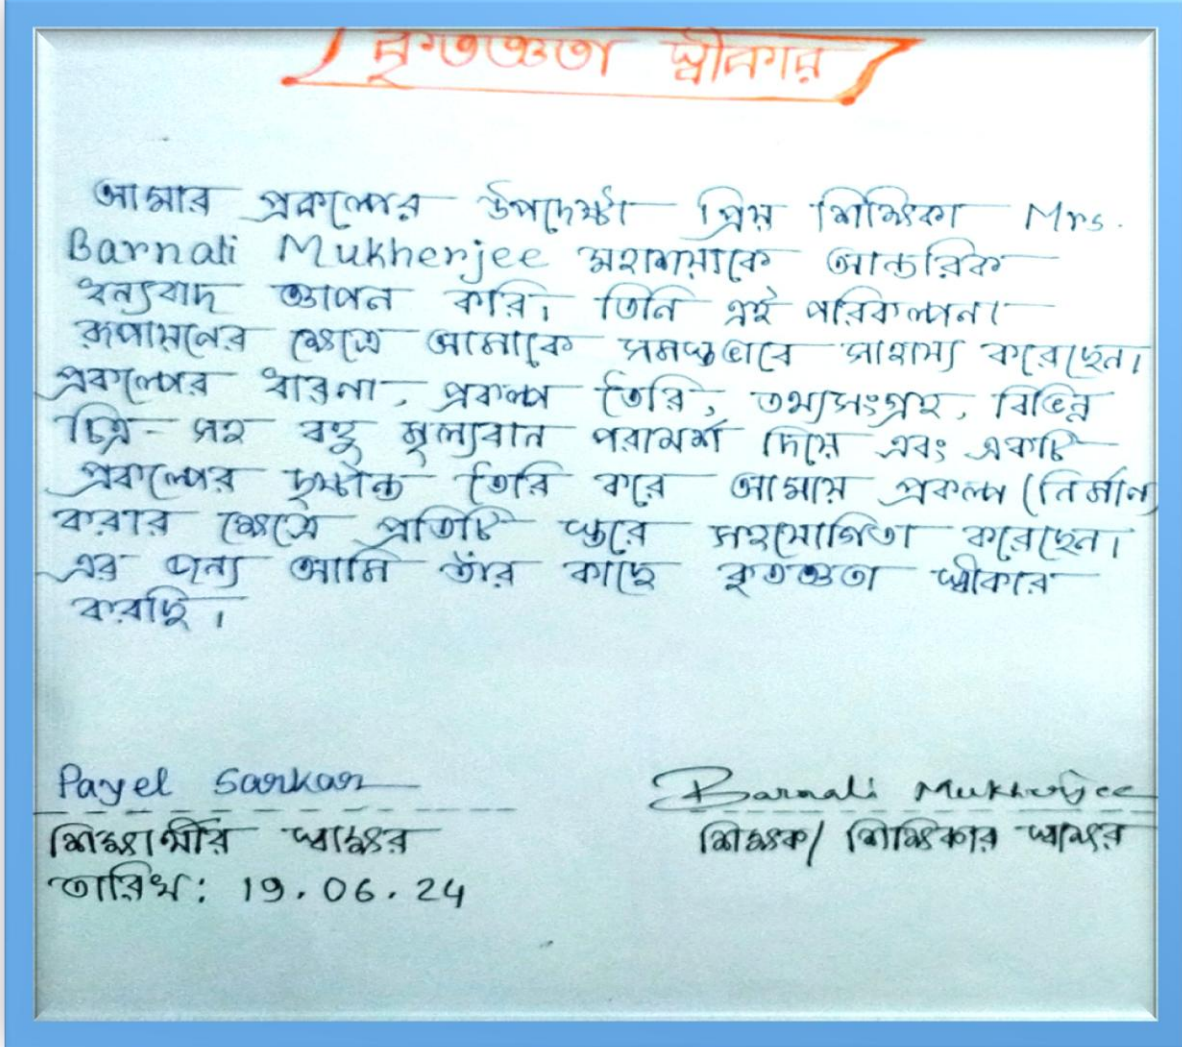 কৃতজ্ঞতা স্বীকার
আমার প্রকল্পের উপদেষ্টা প্রিয় শিক্ষিকা Mrs.
Barnali Mukherjee মহাশয়াকে আন্তরিক
ধন্যবাদ জ্ঞাপন করি। তিনি এই পরিকল্পনা
রূপায়নের ক্ষেত্রে আমাকে সমস্তভাবে সাহায্য করেছেন।
প্রকল্পের ধারনা, প্রকল্প তৈরি, তথ্যসংগ্রহ, বিভিন্ন
চিত্র - সহ বহু মূল্যবান পরামর্শ দিয়ে এবং একটি
প্রকল্পের দৃষ্টান্ত তৈরি করে আমায় প্রকল্প নির্মান
করার ক্ষেত্রে প্রতিটি স্তরে সহযোগিতা করেছেন।
এর জন্য আমি তাঁর কাছে কৃতজ্ঞতা স্বীকার
করছি।
Payel Sarkar
Barnali Mukherjee
শিক্ষার্থীর স্বাক্ষর
শিক্ষক/ শিক্ষিকার স্বাক্ষর
তারিখ: 19.06.24